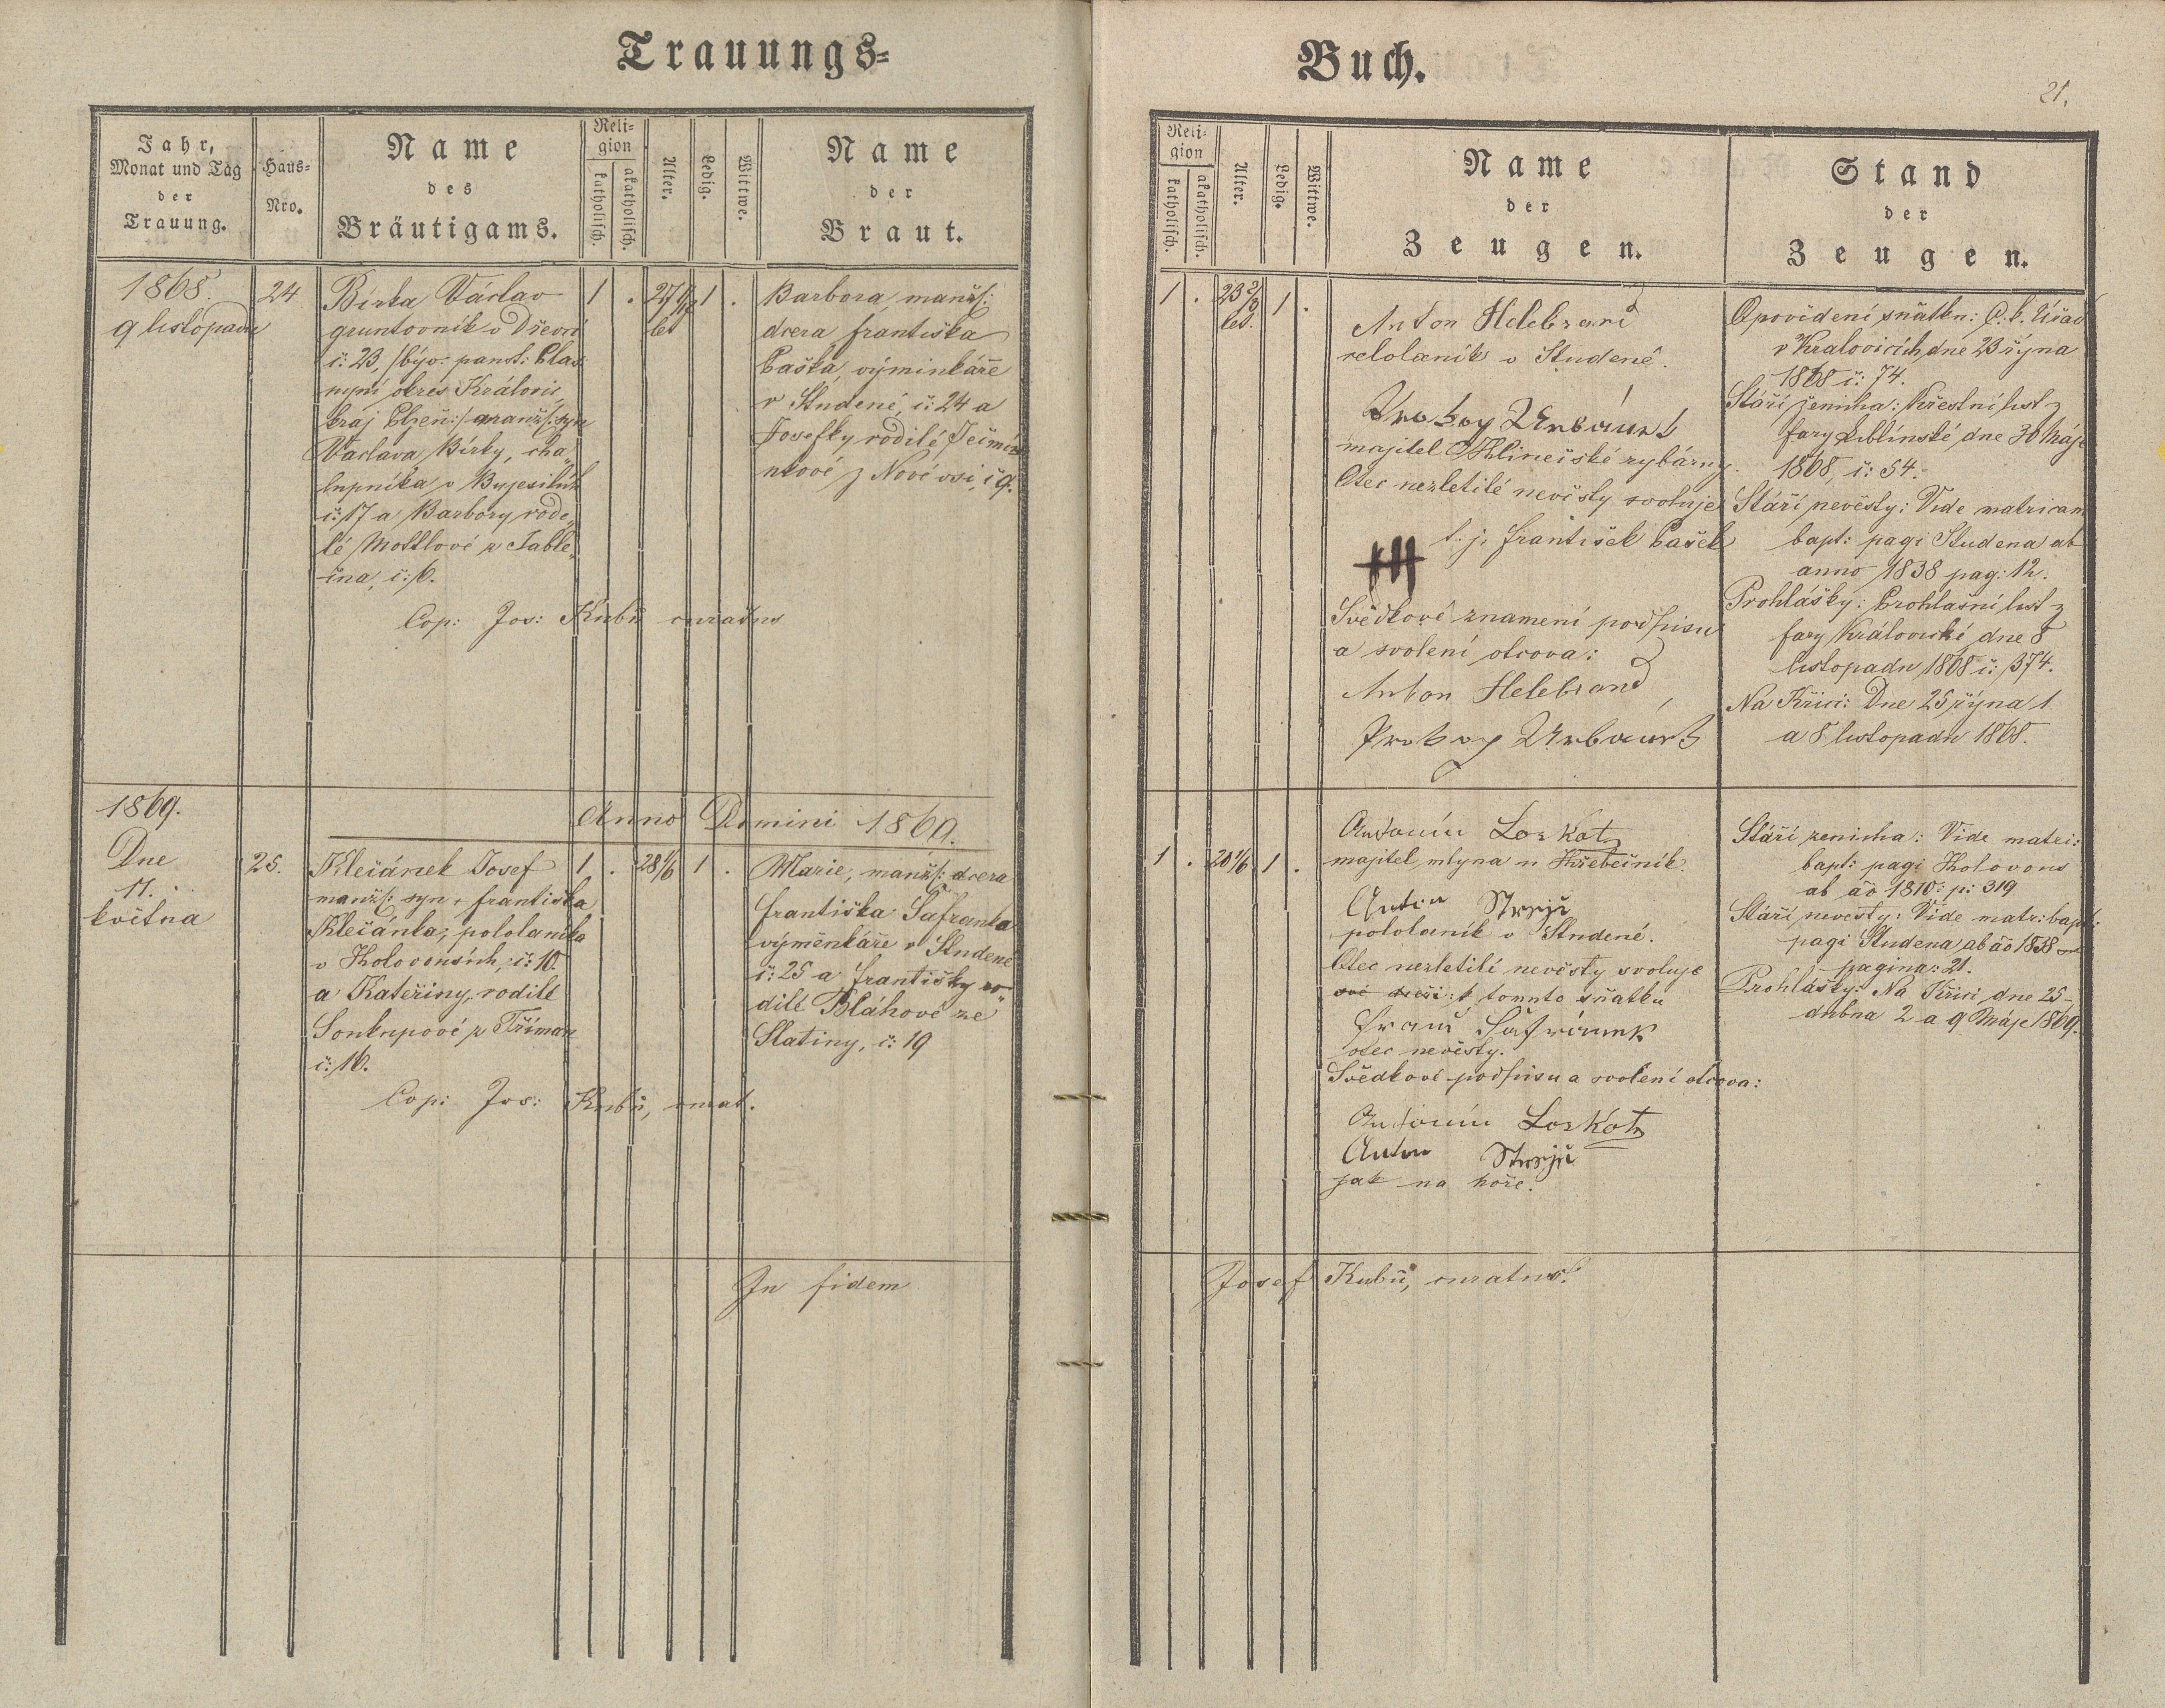 Trauungs=
Jahr,
Monat und Tag
der
Trauung.
Haus=
Nro.
Name
des
Bräutigams.
Reli=
gion
katholisch.
akatholisch.
Alter.
Ledig.
Wittwe.
Name
der
Braut.
1868.
9 listopadu
24
Bírka Václav
gruntovník v Dřevci
č: 23, /býv: panst: Plas
nyní okres Královic,
kraj Plzeň:/ manžl: syn
Václava Bírky, cha„
lupníka v Bujesilích
č: 17 a Barbory rode„
lé Mottlové z Jable„
čna, č: 6.
Cop: Jos: Kubů curatus
1 . 27 1/2 1 .
let
Barbora, manžl:
dcera Františka
Paška, výminkáře
v Studené, č: 24 a
Josefky rodilé Ječmín
kové z Nové vsi, č 9.
Anno Domini 1869.
1869.
Dne
11.
května
25.
Klečánek Josef
manžl: syn, Františka
Klečánka, pololaníka
v Holovousích, č: 10
a Kateřiny, rodilé
Soukupové z Tříman
č: 16.
Cop: Jos: Kubů, curat.
1 . 28 1/6 1 .
Marie, manžl: dcera
Františka Šafránka
výměnkáře v Studené
č: 25 a Františky ro„
dilé Bláhové ze
Slatiny, č: 19
In fidem
Buch.
21.
Reli=
gion
katholisch.
akatholisch.
Alter.
Ledig.
Wittwe.
Name
der
Zeugen.
Stand
der
Zeugen.
1 . 23 2/3 1 .
let.
Anton Helebrand
celolaník v Studené.
Prokop Urbánek
majitel Hlinečské rybárny.
Otec nezletilé nevěsty svoluje
t. j. František Pašek
+++
Svědkové znamení podpisu
a svolení otcova:
Anton Helebrand
Prokop Urbánek
Opovědení sňatku: C. k. Úřad
v Kralovicích, dne 23 října
1868 č: 74.
Stáří ženicha: Křestní list z
fary Liblínské, dne 30 Máje
1868, č: 54.
Stáří nevěsty: Vide matricam
bapt: pagi Studena ab
anno 1838 pag: 12.
Prohlášky: Prohlašní list z
fary Královické, dne 8
listopadu 1868 č: 374.
Na Kříci: Dne 25 října, 1
a 8 listopadu 1868.
1 . 20 1/6 1 .
Antonín Loskot
majitel mlyna u Hřebečník.
Anton
pololaník v Studené.
Otec nezletilé nevěsty svoluje
své dceři: k tomuto sňatku
Franc Šafránek
otec nevěsty.
Svědkové podpisu a svolení otcova:
Antonín Loskot
Anton
jak na hoře.
Stáří ženicha: Vide matri:
bapt: pagi Holovous
ab ao 1810: p: 319
Stáří nevěsty: Vide matr: bapt:
pagi Studena ab ao 1838
pagina: 21.
Prohlášky: Na Kříci dne 25
dubna 2 a 9 Máje 1869.
Josef Kubů, curatus.